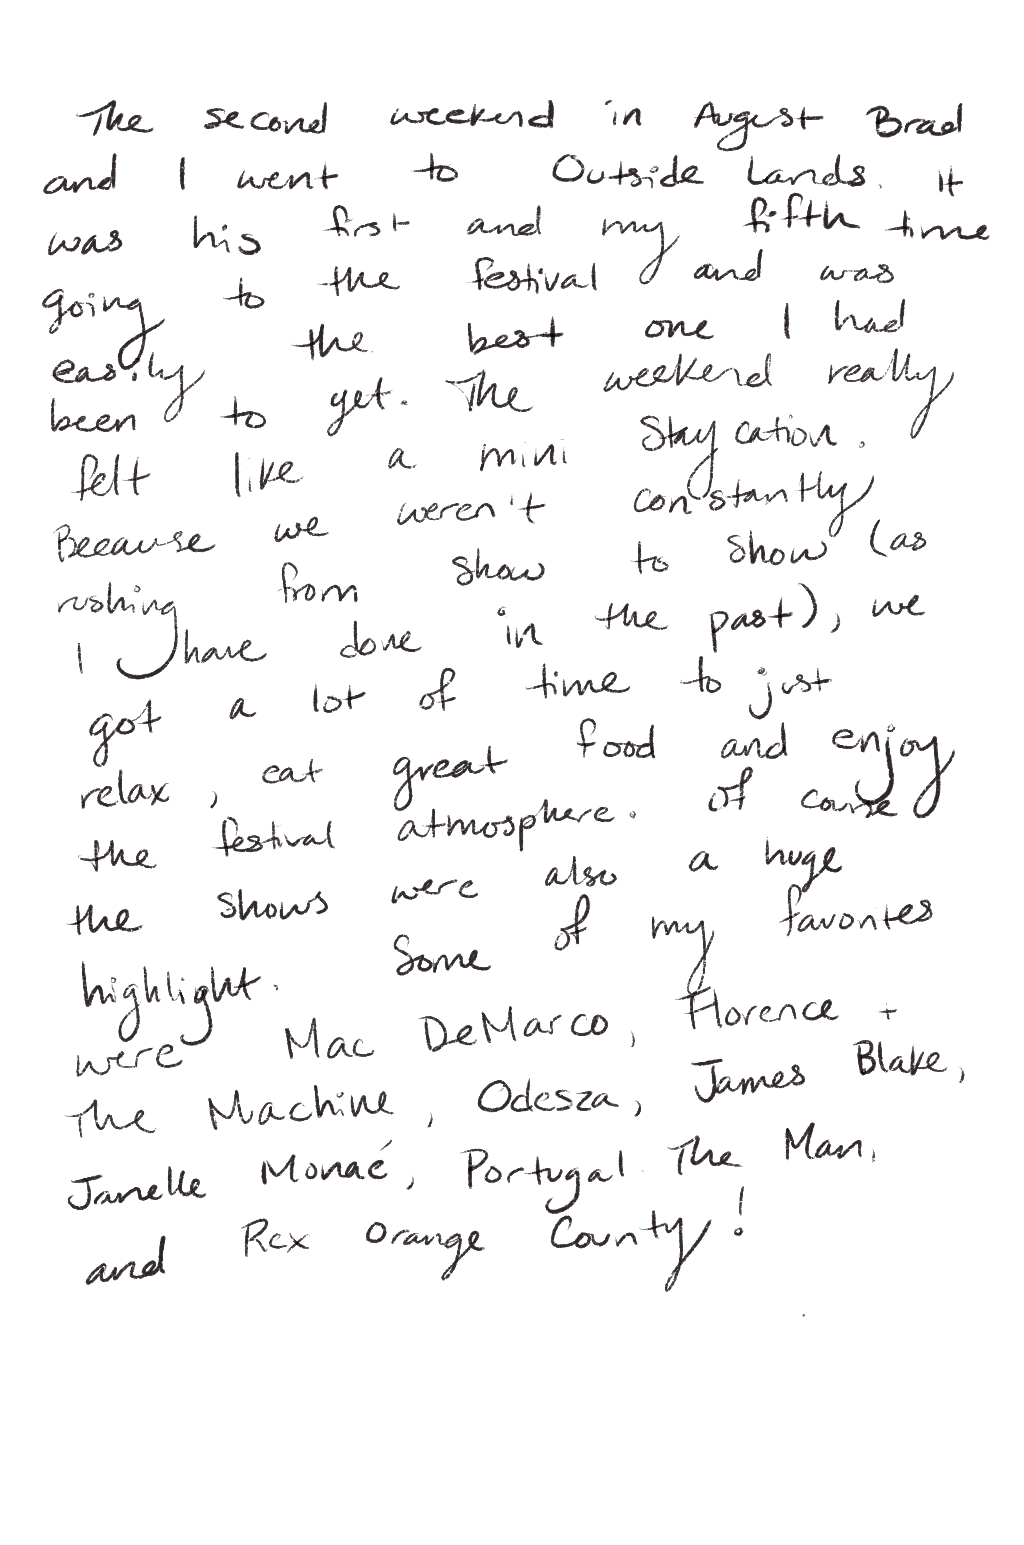 The second weekend in August Brad
and I went to Outside Lands. It
was his first and my fifth time
going to the festival and was
easily the best one I had
been to yet. The weekend really
felt like a mini Staycation.
Because we weren't constantly
rushing from show to show (as
I have done in the past), we
got a lot of time to just
relax, eat great food and enjoy
the festival atmosphere. Of course
the shows were also a huge
highlight. Some of my favorites
were Mac DeMarco, Florence +
The Machine, Odesza, James Blake,
Janelle Monaé, Portugal. The Man,
and Rex Orange County!